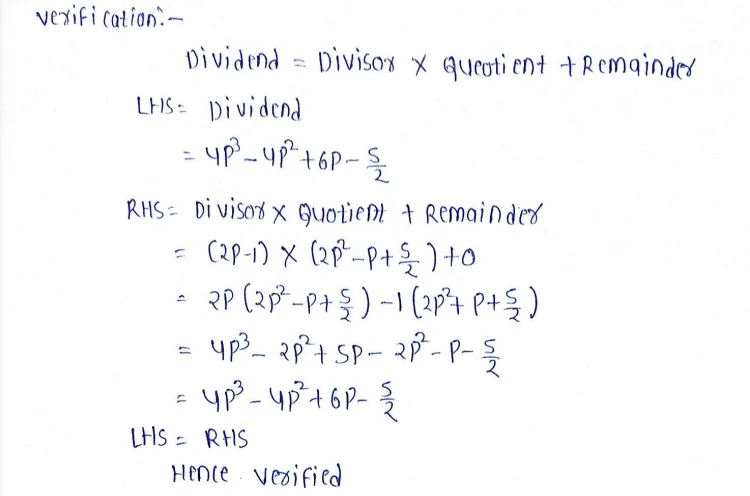 Verification:-
Dividend = Divisor × Queotient + Remainder
LHS = Dividend
= 4p³ - 4p² + 6p - 5/2
RHS = Divisor × Quotient + Remainder
= (2p-1) × (2p² - p + 5/2) + 0
= 2p (2p² - p + 5/2) - 1 (2p² + p + 5/2)
= 4p³ - 2p² + 5p - 2p² - p - 5/2
= 4p³ - 4p² + 6p - 5/2
LHS = RHS
Hence verified